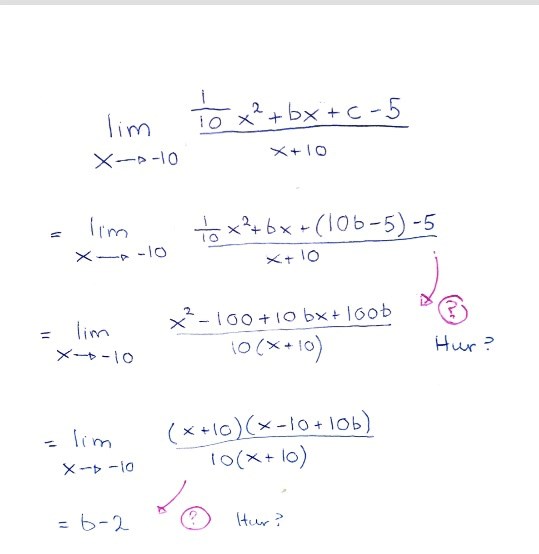 lim 1/10 x² + bx + c - 5 / x + 10
x→-10
= lim 1/10 x² + bx + (10b - 5) - 5 / x + 10
x→-10
?
= lim x² - 100 + 10bx + 100b / 10(x + 10)
x→-10
Hur?
= lim (x + 10)(x - 10 + 10b) / 10(x + 10)
x→-10
= b - 2 ? Hur?